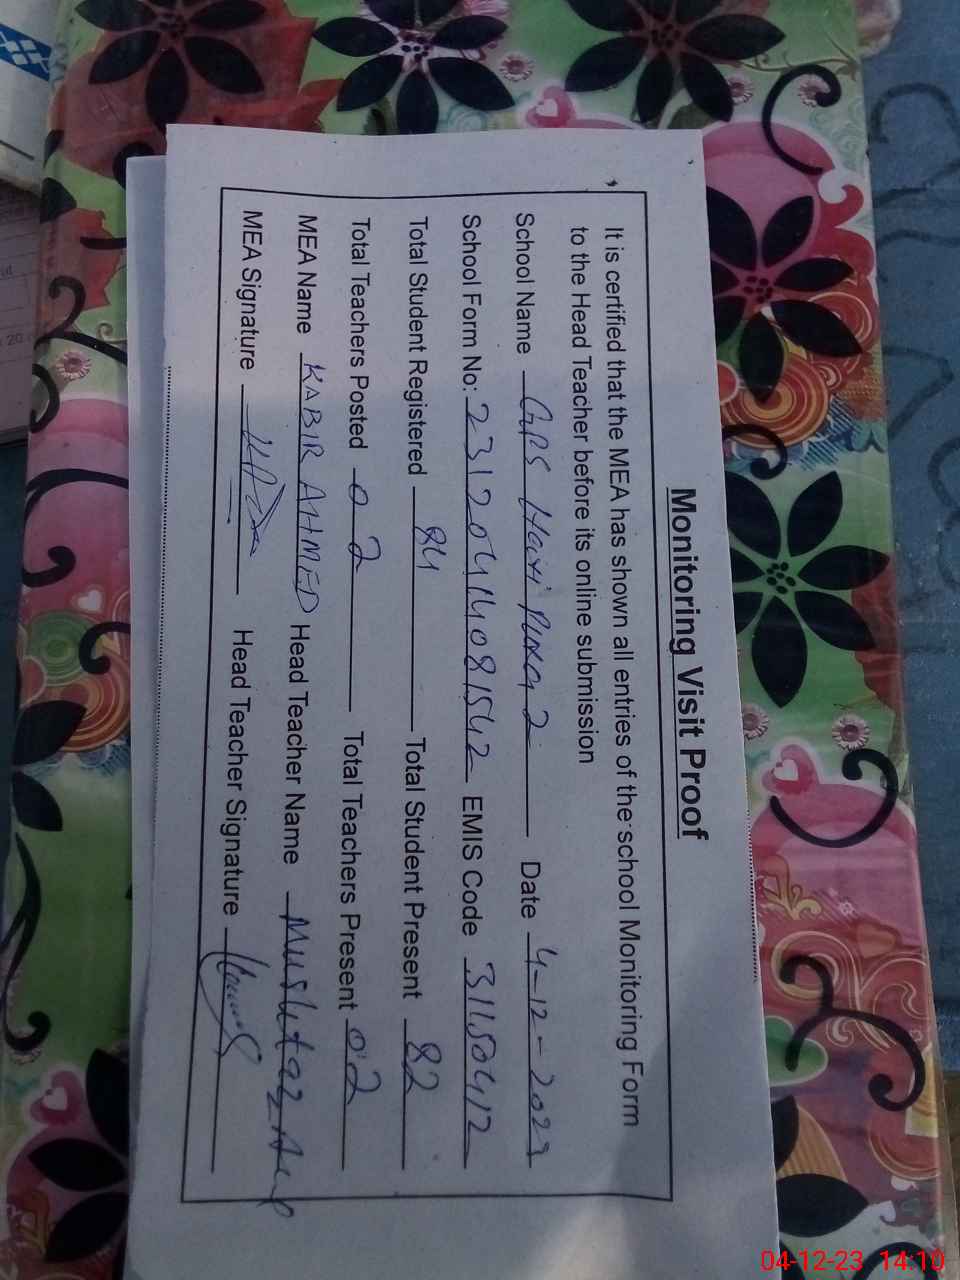 Monitoring Visit Proof
It is certified that the MEA has shown all entries of the school Monitoring Form
to the Head Teacher before its online submission
School Name GPS Haxi Date 4-12-2023
School Form No: 23120414081542 EMIS Code 31150412
Total Student Registered 84 Total Student Present 82
Total Teachers Posted 02 Total Teachers Present 02
MEA Name KABIR AHMED Head Teacher Name Mushtaq
MEA Signature Head Teacher Signature
04-12-23 14:10